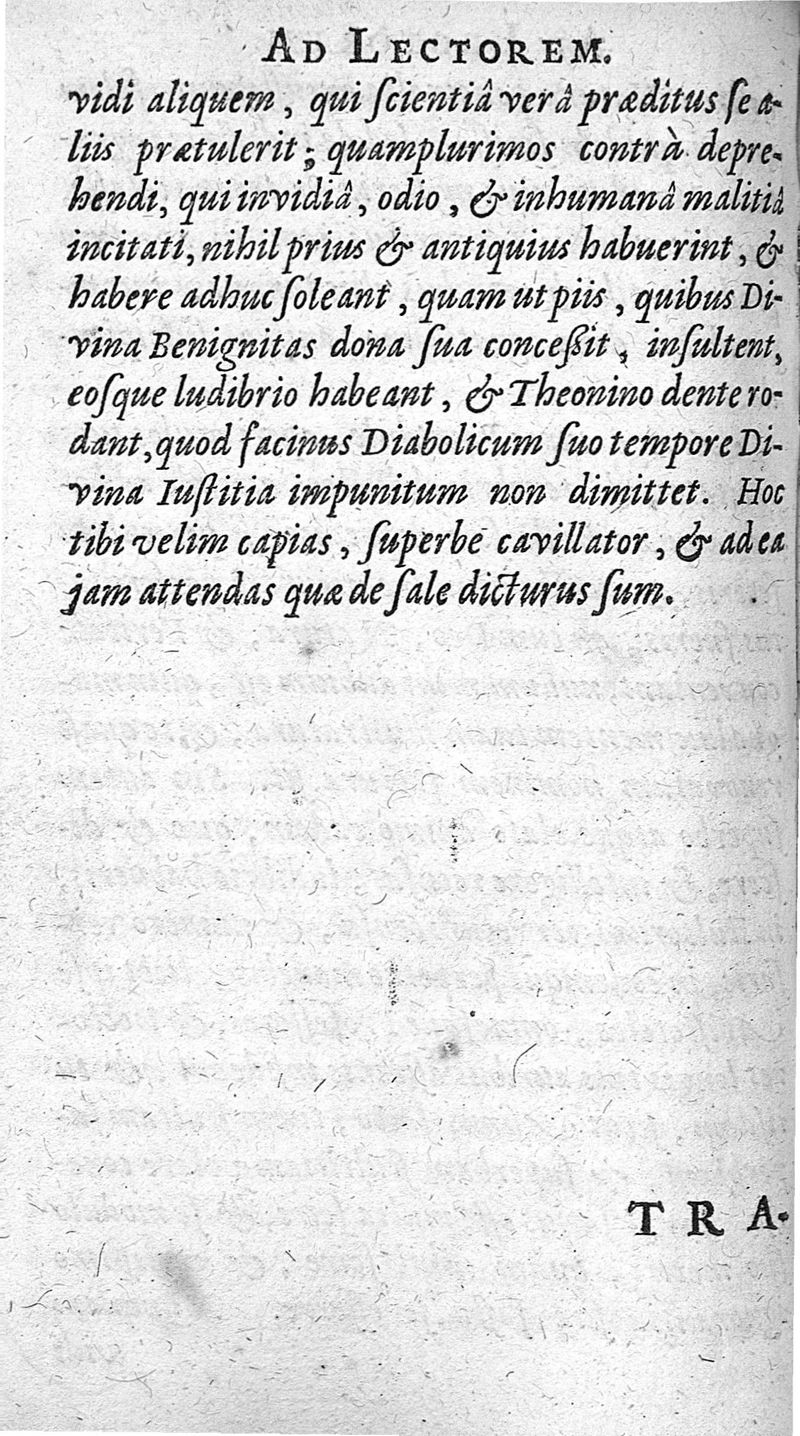 AD LECTOREM.
vidi aliquem, qui ſcientiâ verâ præditus ſe a-
liis prætulerit; quamplurimos contrà depre-
hendi, qui invidiâ, odio, & inhumanâ malitiâ
incitati, nihil prius & antiquius habuerint, &
habere adhuc ſoleant, quam ut piis, quibus Di-
vina Benignitas dona sua conceßit, inſultent,
eoſque ludibrio habeant, & Theonino dente ro-
dant, quod facinus Diabolicum ſuo tempore Di-
vina Iuſtitia impunitum non dimittet. Hoc
tibi velim capias, ſuperbe cavillator, & ad ea
jam attendas quæ de ſale dicturus ſum.
TRA-